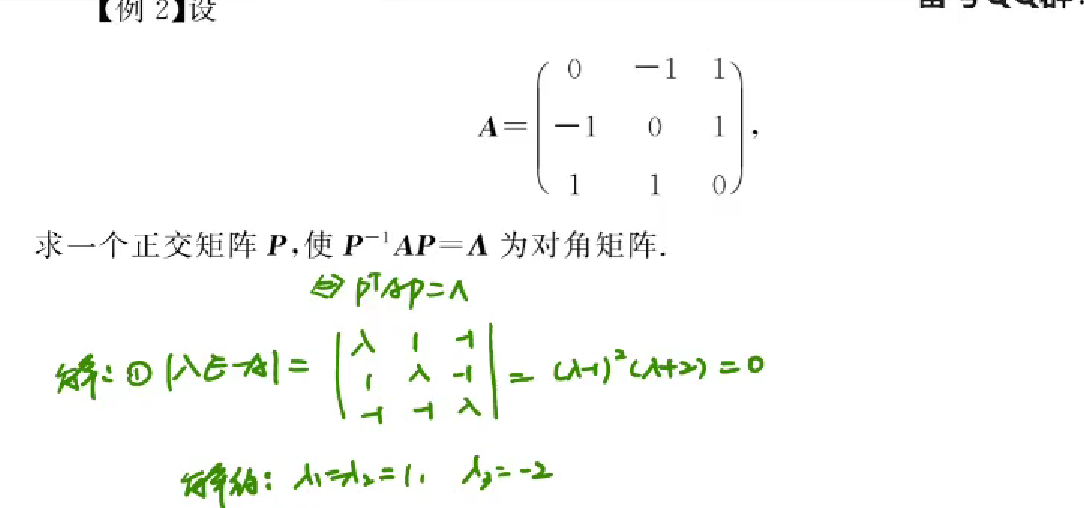 【例 2】设
A=
0 -1 1
-1 0 1
1 1 0
,
求一个正交矩阵 P,使 P⁻¹AP=Λ 为对角矩阵.
⇔ PᵀAP=Λ
解: ① |λE-A| =
λ 1 -1
1 λ -1
-1 -1 λ
= (λ-1)²(λ+2) = 0
解得: λ₁=λ₂=1, λ₃=-2